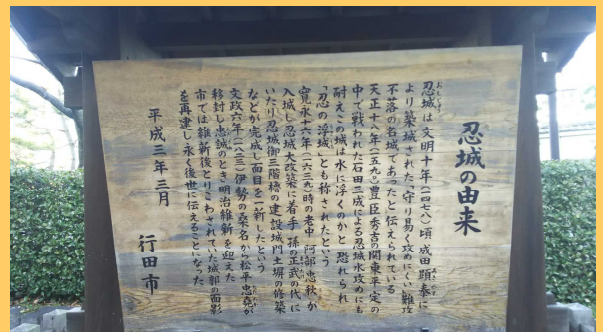 忍城の由来
忍城は文明十年(一四七八)頃成田顕泰に
より築城された「守り易く攻めにくい難攻
不落の名城であったと伝えられている
天正十八年(一五九〇)豊臣秀吉の関東平定の
中で戦われた石田三成による忍城水攻めにも
耐えこの城は水に浮くのかと恐れられ
「忍の浮城」とも称されたという
寛永十六年(一六三九)時の老中 阿部忠秋が
入城し忍城大改築に着手 孫の正武の代に
いたり忍城御三階櫓の建設城門土塀の修築
などが完成し面目を一新したという
文政六年(一八二三)伊勢の桑名から松平忠堯が
移封し忠誠のとき明治維新を迎えた
市では維新後とりこわされていた城郭の面影
を再建し永く後世に伝えることになった
平成三年三月
行田市